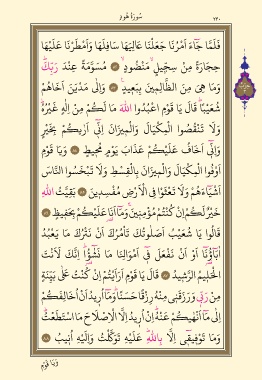 سُورَةُ هُودٍ
٢٣٠
فَلَمَّا جَٓاءَ اَمْرُنَا جَعَلْنَا عَالِيَهَا سَافِلَهَا وَاَمْطَرْنَا عَلَيْهَا
حِجَارَةً مِنْ سِجّ۪يلٍ مَنْضُودٍۙ ﴿٨٢﴾ مُسَوَّمَةً عِنْدَ رَبِّكَۜ
وَمَا هِيَ مِنَ الظَّالِم۪ينَ بِبَع۪يدٍ۟ ﴿٨٣﴾ وَاِلٰى مَدْيَنَ اَخَاهُمْ
شُعَيْبًاۜ قَالَ يَا قَوْمِ اعْبُدُوا اللّٰهَ مَا لَكُمْ مِنْ اِلٰهٍ غَيْرُهُۜ
وَلَا تَنْقُصُوا الْمِكْيَالَ وَالْم۪يزَانَ اِنّ۪ٓي اَرٰيكُمْ بِخَيْرٍ
وَاِنّ۪ٓي اَخَافُ عَلَيْكُمْ عَذَابَ يَوْمٍ مُح۪يطٍ ﴿٨٤﴾ وَيَا قَوْمِ
اَوْفُوا الْمِكْيَالَ وَالْم۪يزَانَ بِالْقِسْطِ وَلَا تَبْخَسُوا النَّاسَ
اَشْيَٓاءَهُمْ وَلَا تَعْثَوْا فِي الْاَرْضِ مُفْسِد۪ينَ ﴿٨٥﴾ بَقِيَّتُ اللّٰهِ
خَيْرٌ لَكُمْ اِنْ كُنْتُمْ مُؤْمِن۪ينَۚ وَمَٓا اَنَا۬ عَلَيْكُمْ بِحَف۪يظٍ ﴿٨٦﴾
قَالُوا يَا شُعَيْبُ اَصَلٰوتُكَ تَأْمُرُكَ اَنْ نَتْرُكَ مَا يَعْبُدُ
اٰبَٓاؤُ۬نَٓا اَوْ اَنْ نَفْعَلَ ف۪ٓي اَمْوَالِنَا مَا نَشٰٓؤُ۬اۜ اِنَّكَ لَاَنْتَ
الْحَل۪يمُ الرَّش۪يدُ ﴿٨٧﴾ قَالَ يَا قَوْمِ اَرَاَيْتُمْ اِنْ كُنْتُ عَلٰى بَيِّنَةٍ
مِنْ رَبّ۪ي وَرَزَقَن۪ي مِنْهُ رِزْقًا حَسَنًاۜ وَمَٓا اُر۪يدُ اَنْ اُخَالِفَكُمْ
اِلٰى مَٓا اَنْهٰيكُمْ عَنْهُۜ اِنْ اُر۪يدُ اِلَّا الْاِصْلَاحَ مَا اسْتَطَعْتُۜ
وَمَا تَوْف۪يق۪ٓي اِلَّا بِاللّٰهِۜ عَلَيْهِ تَوَكَّلْتُ وَاِلَيْهِ اُن۪يبُ ﴿٨٨﴾
وَيَا قَوْمِ